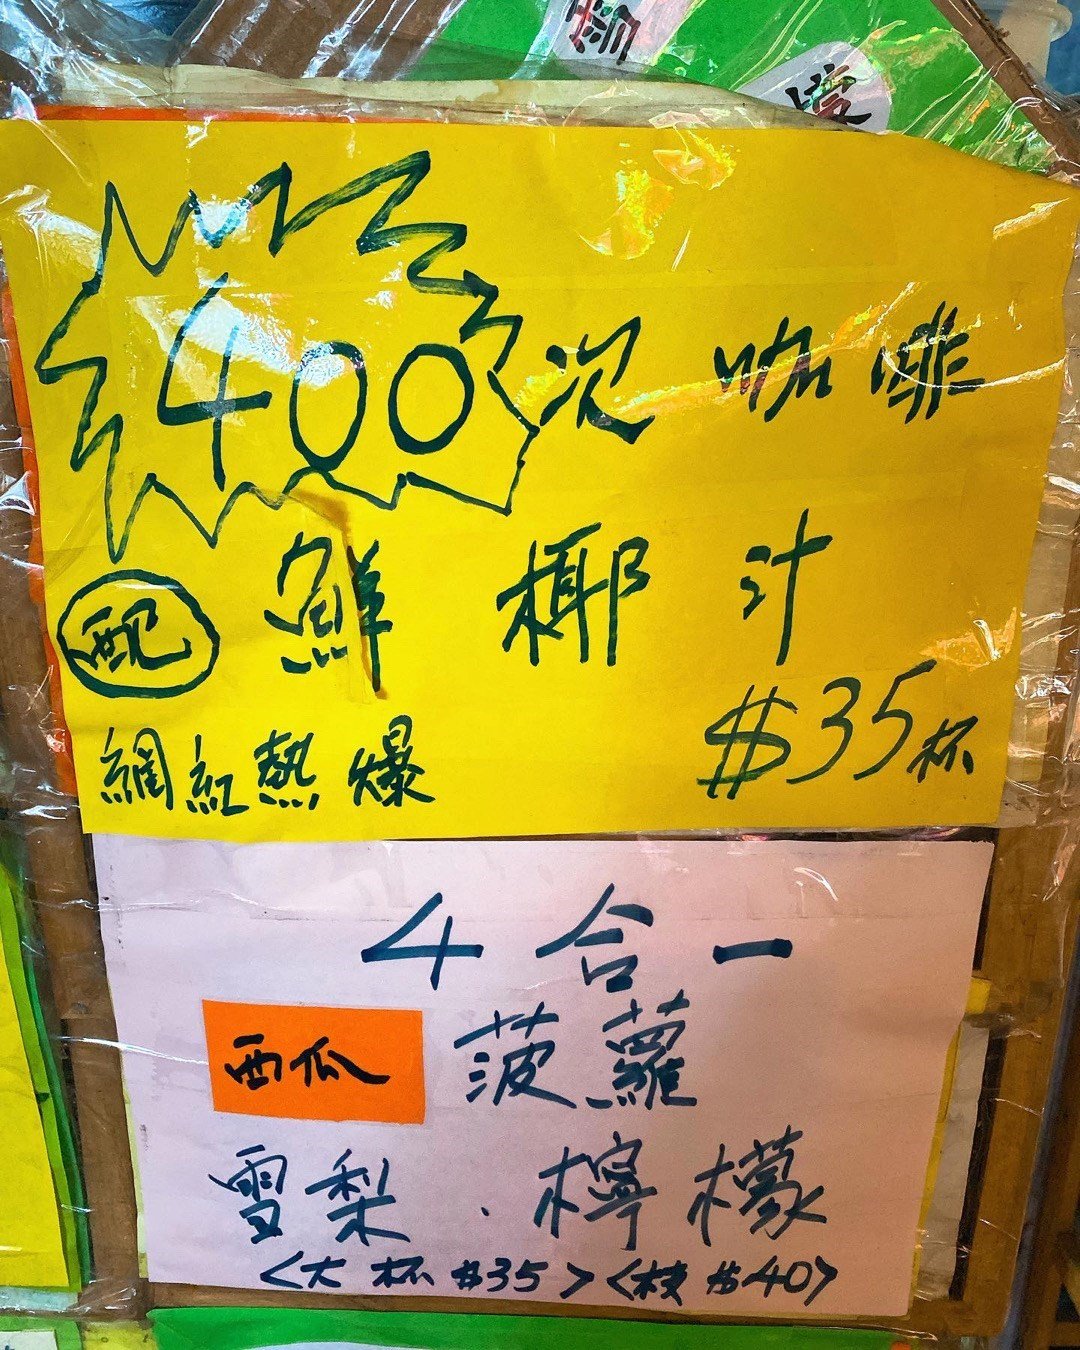 400次 咖啡
配 鮮椰汁
網紅熱爆 $35杯
4合一
西瓜 菠蘿
雪梨．檸檬
<大杯 $35> <枝 $40>